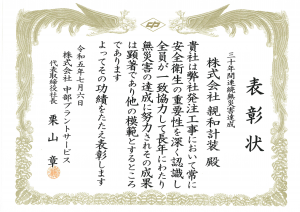 表彰状
三十年間連続無災害達成
株式会社 親和計装 殿
貴社は弊社発注工事において常に
安全衛生の重要性を深く認識し
全員が一致協力して長年にわたり
無災害の達成に努力されその成果
は顕著であり他の模範とするところ
であります
よってその功績をたたえ表彰します
令和五年七月六日
株式会社 中部プラントサービス
代表取締役社長 栗山 章